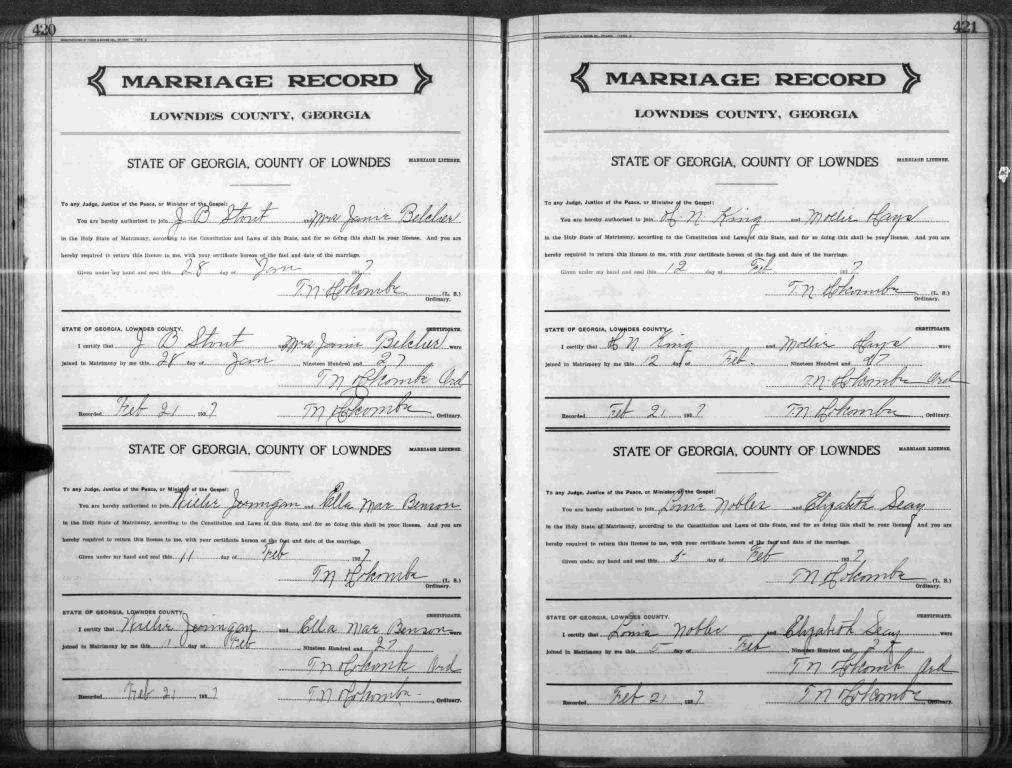 420
MARRIAGE RECORD
LOWNDES COUNTY, GEORGIA
STATE OF GEORGIA, COUNTY OF LOWNDES MARRIAGE LICENSE.
To any Judge, Justice of the Peace, or Minister of the Gospel:
You are hereby authorized to join J B Stout and Mrs Janie Belcher
in the Holy State of Matrimony, according to the Constitution and Laws of this State, and for so doing this shall be your license. And you are
hereby required to return this license to me, with your certificate hereon of the fact and date of the marriage.
Given under my hand and seal this 28 day of Jan 1927
T.N. Holcombe (L. S.)
Ordinary.
STATE OF GEORGIA, LOWNDES COUNTY. CERTIFICATE.
I certify that J B Stout and Mrs Janie Belcher were
joined in Matrimony by me this 28 day of Jan Nineteen Hundred and 27
T N Holcombe Ord
Recorded Feb 21 1927 T N Holcombe Ordinary.
STATE OF GEORGIA, COUNTY OF LOWNDES MARRIAGE LICENSE.
To any Judge, Justice of the Peace, or Minister of the Gospel:
You are hereby authorized to join Willie Jernigan and Ella Mae Benson
in the Holy State of Matrimony, according to the Constitution and Laws of this State, and for so doing this shall be your license. And you are
hereby required to return this license to me, with your certificate hereon of the fact and date of the marriage.
Given under my hand and seal this 11 day of Feb 1927
T N Holcombe (L. S.)
Ordinary.
STATE OF GEORGIA, LOWNDES COUNTY. CERTIFICATE.
I certify that Willie Jernigan and Ella Mae Benson were
joined in Matrimony by me this day of Feb Nineteen Hundred and 27
T N Holcombe Ord
Recorded Feb 21 1927 T N Holcombe Ordinary.
421
MARRIAGE RECORD
LOWNDES COUNTY, GEORGIA
STATE OF GEORGIA, COUNTY OF LOWNDES MARRIAGE LICENSE.
To any Judge, Justice of the Peace, or Minister of the Gospel:
You are hereby authorized to join H. N. King and Mollie Hays
in the Holy State of Matrimony, according to the Constitution and Laws of this State, and for so doing this shall be your license. And you are
hereby required to return this license to me, with your certificate hereon of the fact and date of the marriage.
Given under my hand and seal this 12 day of Feb 1927
T. N. Holcombe (L. S.)
Ordinary.
STATE OF GEORGIA, LOWNDES COUNTY. CERTIFICATE.
I certify that H N King and Mollie Hays were
joined in Matrimony by me this 12 day of Feb. Nineteen Hundred and 27
T.N. Holcombe Ord
Recorded Feb 21 1927 T N Holcombe Ordinary.
STATE OF GEORGIA, COUNTY OF LOWNDES MARRIAGE LICENSE.
To any Judge, Justice of the Peace, or Minister of the Gospel:
You are hereby authorized to join Nobles and Elizabeth Seay
in the Holy State of Matrimony, according to the Constitution and Laws of this State, and for so doing this shall be your license. And you are
hereby required to return this license to me, with your certificate hereon of the fact and date of the marriage.
Given under my hand and seal this 5 day of Feb 1927
T N Holcombe (L. S.)
Ordinary.
STATE OF GEORGIA, LOWNDES COUNTY. CERTIFICATE.
I certify that Nobles and Elizabeth Seay were
joined in Matrimony by me this 5 day of Feb Nineteen Hundred and 27
T N Holcombe Ord
Recorded Feb 21 1927 T N Holcombe Ordinary.